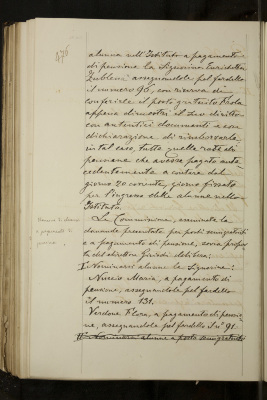 476
alunna nell'Istituto a pagamento
di pensione la Signorina Enrichetta
assegnandole pel fardello
il numero 96, con riserva di
conferirle il posto gratuito
appena dimostri il suo diritto
con autentici documenti e con
dichiarazione di rimborsarla,
in tal caso, tutte quelle rate di
pensione che avesse pagato ante
cedentemente a contare dal
giorno 20 corrente, giorno fissato
per l'ingresso delle alunne nello
Istituto.
La Commissione, esaminate le
domande presentate per posti semigratuiti
e a pagamento di pensione, sovra propos
ta del direttore delibera:
I° Nominarsi alunne le Signorine:
Maria, a pagamento di
pensione, assegnandole pel fardello
il numero 131.
Verdone Flora, a pagamento di pensio
ne, assegnandole pel fardello il n° 91.
II° Nominarsi alunne a posto semigratuito